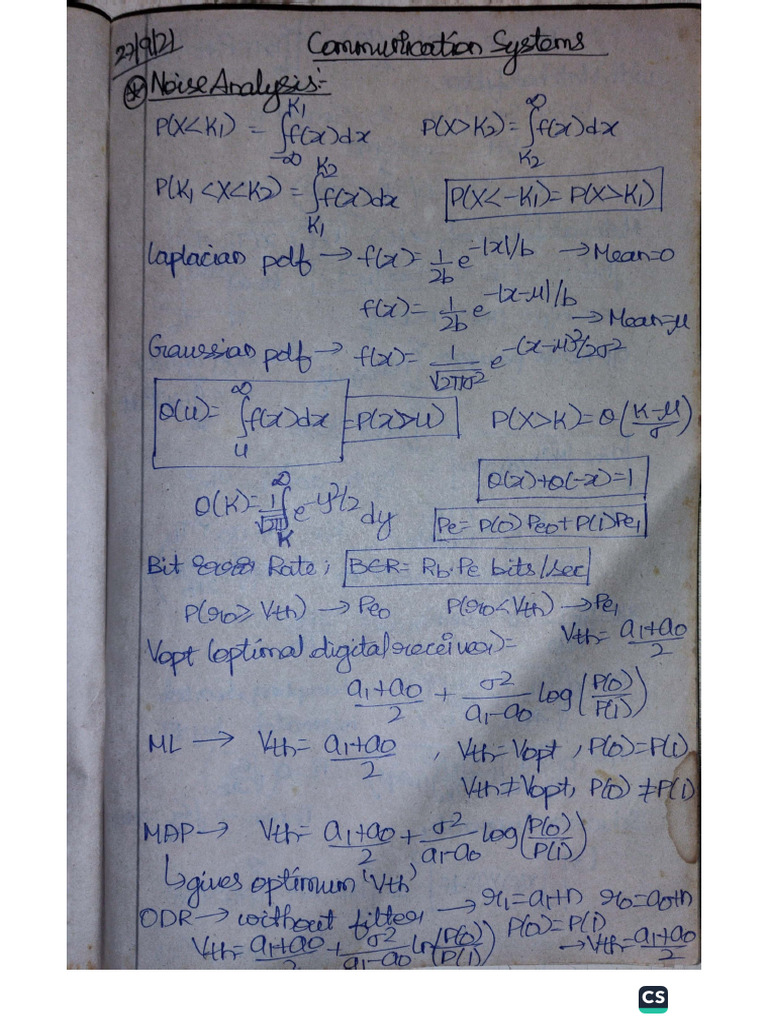 27/9/21 Communication Systems
⊛ Noise Analysis:-
P(X<K1) = ∫_{-∞}^{K1} f(x)dx   P(X>K2) = ∫_{K2}^{∞} f(x)dx
P(K1<X<K2) = ∫_{K1}^{K2} f(x)dx   P(X<-K1) = P(X>K1)
Laplacian pdf → f(x) = 1/2b e^{-|x|/b} → Mean=0
f(x) = 1/2b e^{-|x-μ|/b} → Mean=μ
Gaussian pdf → f(x) = 1/√2πσ² e^{-(x-μ)²/2σ²}
Q(u) = ∫_{u}^{∞} f(x)dx = P(x>u)   P(X>K) = Q((K-μ)/σ)
Q(x)+Q(-x)=1
Q(K) = 1/√2π ∫_{K}^{∞} e^{-y²/2} dy
Pe = P(0)Pe0 + P(1)Pe1
Bit Rate; BER = Rb.Pe bits/sec
P(r0 ≥ Vth) → Pe0   P(r0 < Vth) → Pe1
Vopt (optimal digital receiver) =   Vth = (a1+a0)/2
(a1+a0)/2 + σ²/(a1-a0) log(P(0)/P(1))
ML → Vth = (a1+a0)/2 , Vth=Vopt, P(0)=P(1)
Vth≠Vopt, P(0)≠P(1)
MAP → Vth = (a1+a0)/2 + σ²/(a1-a0) log(P(0)/P(1))
↳ gives optimum 'Vth'
ODR → without filter → r1=a1+n r0=a0+n
P(0)=P(1)
Vth = (a1+a0)/2 + σ²/(a1-a0) ln(P(0)/P(1)) → Vth = (a1+a0)/2
CS